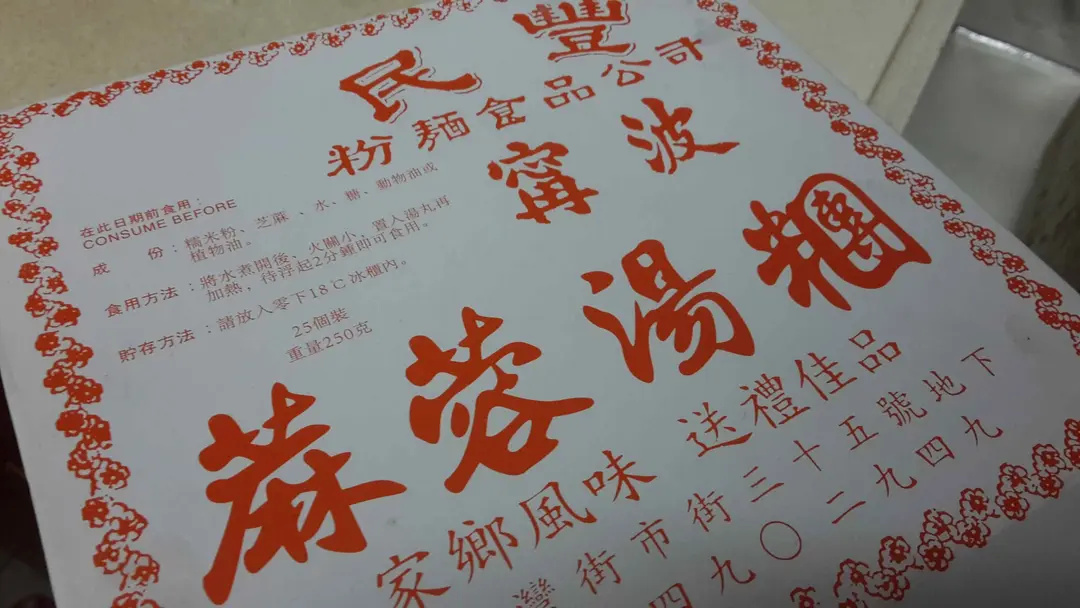 民豐
粉麵食品公司
寗波
蔴蓉湯糰
家鄉風味 送禮佳品
灣街市街三十五號地下
四九〇二九四九
在此日期前食用：
CONSUME BEFORE
成 份：糯米粉、芝蔴、水、糖、動物油或
植物油。
食用方法：將水煮開後、火關小、置入湯丸再
加熱，待浮起2分鍾即可食用。
貯存方法：請放入零下18℃冰櫃內。
25個裝
重量250克